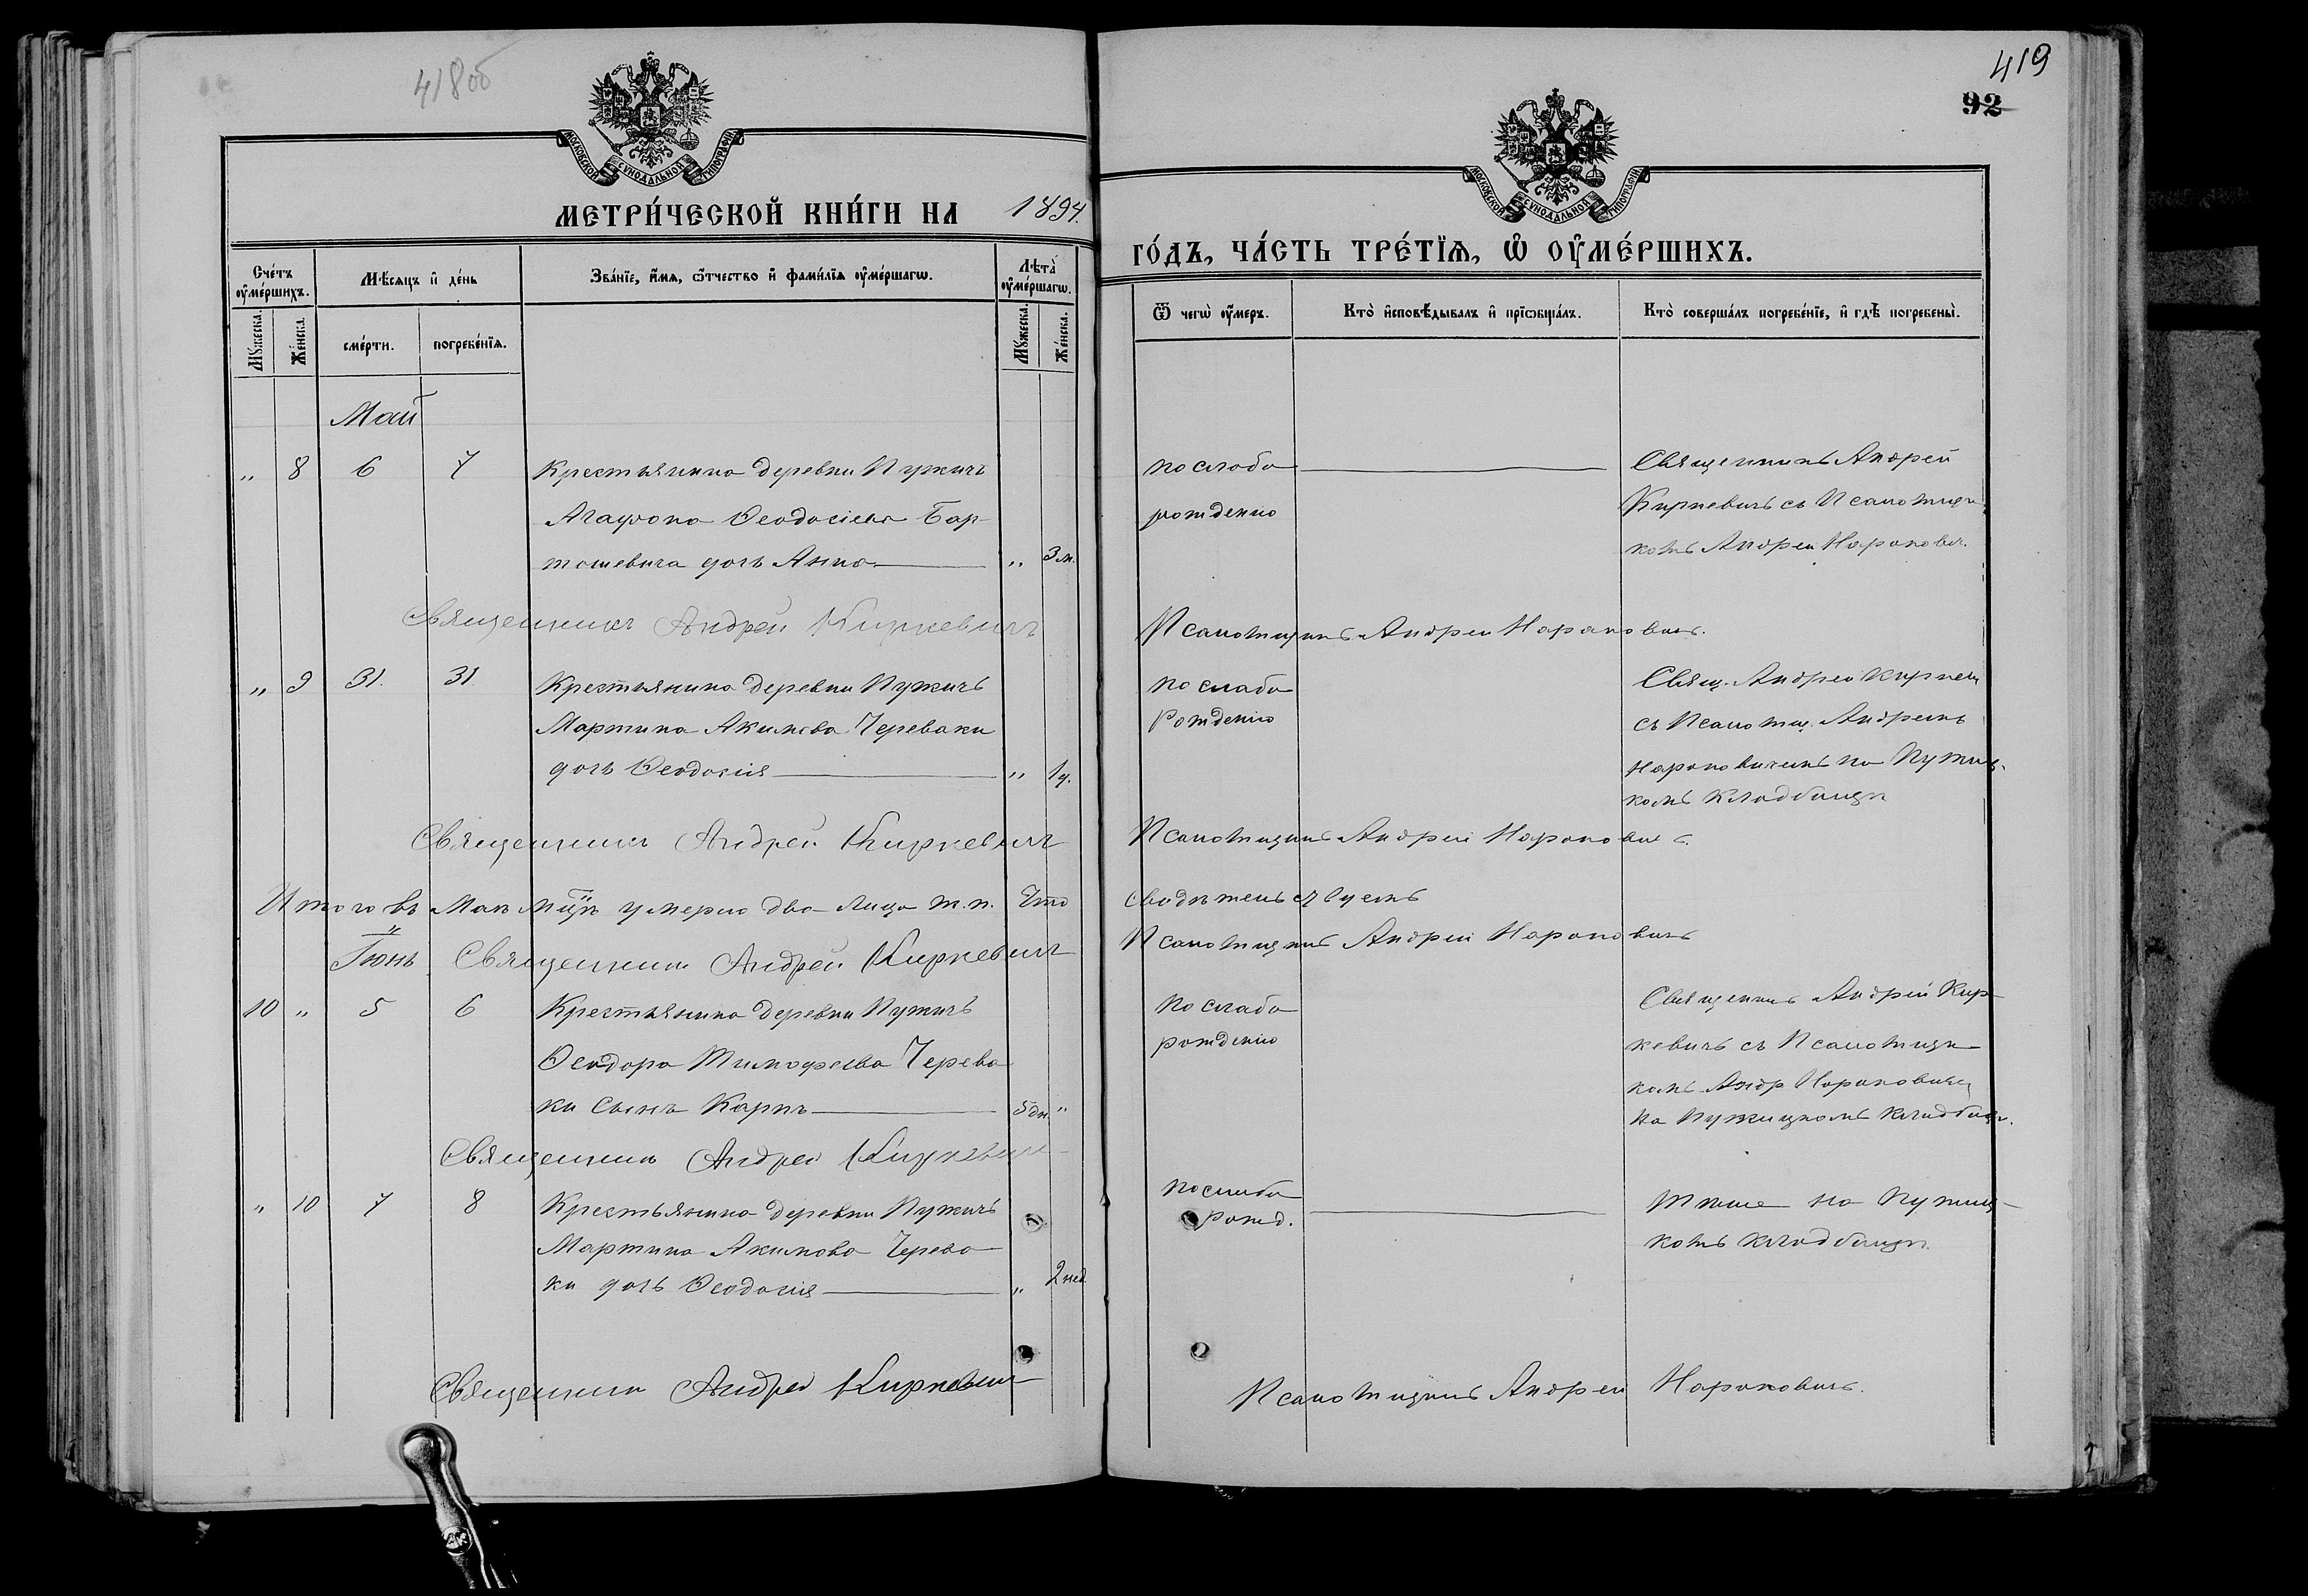 418 об
419
92
МОСКОВСКОЙ СѴНОДАЛЬНОЙ ТИПОГРАФІИ
МОСКОВСКОЙ СѴНОДАЛЬНОЙ ТИПОГРАФІИ
МЕТРИ́ЧЕСКОЙ КНИ́ГИ НА 1894.
ГО́ДЪ, ЧА́СТЬ ТРЕ́ТЇѦ, Ѡ҆ ОУ҆МЕ́РШИХЪ.
Счетъ оу҆ме́ршихъ.
Мѣ́сѧцъ и҆ де́нь
Зва́нїе, и҆́мѧ, ѻ҆́тчество и҆ фами́лїѧ оу҆ме́ршагѡ.
Лѣта̀ оу҆ме́ршагѡ.
Ѿ чегѡ̀ оу҆́меръ.
Кто̀ и҆сповѣ́дывалъ и҆ прїѡбща́лъ.
Кто̀ соверша́лъ погребе́нїе, и҆ гдѣ̀ погребены̀.
Мꙋ́жеска.
Же́нска.
сме́рти.
погребе́нїѧ.
Мꙋ́жеска.
Же́нска.
Май
„ 8 6 7 Крестьянина деревни Пужичъ
Агафона Ѳеодосіева Бар-
тошевича дочь Анна „ 3 м.
по слабо
рожденію
Священникъ Андрей
Киркевичъ съ Псаломщи
комъ Андреи Наронович.
Священникъ Андрей Киркевичъ
Псаломщикъ Андрей Нароновичъ.
„ 9 31. 31 Крестьянина деревни Пужичъ
Мартина Акимова Череваки
дочь Ѳеодосія „ 1 д.
по слабо
рожденію
Свящ. Андрей Киркеви
съ Псаломщ. Андреемъ
Нароновичемъ на Пужиц-
комъ кладбищи
Священникъ Андрей Киркевичъ
Псаломщикъ Андрей Нароновичъ.
Итого въ Маѣ мцѣ умерло два лица ж. п. Что
свидѣтельствуемъ
Іюнь Священникъ Андрей Киркевичъ
Псаломщикъ Андрей Нароновичъ
10 „ 5 6 Крестьянина деревни Пужичъ
Ѳеодора Тимофеева Черева
ки сынъ Карпъ 5 дн. „
по слабо
рожденію
Священникъ Андрей Кир-
кевичъ съ Псаломщи-
комъ Андр Нароновичем
на Пужицкомъ кладбищи.
Священникъ Андрей Киркевичъ
„ 10 7 8 Крестьянина деревни Пужичъ
Мартина Акимова Черева-
ки дочь Ѳеодосія „ 2 нед.
по слабо
рожд.
Тѣже на Пужиц-
комъ кладбищи.
Священникъ Андрей Киркевичъ
Псаломщикъ Андрей Нароновичъ.